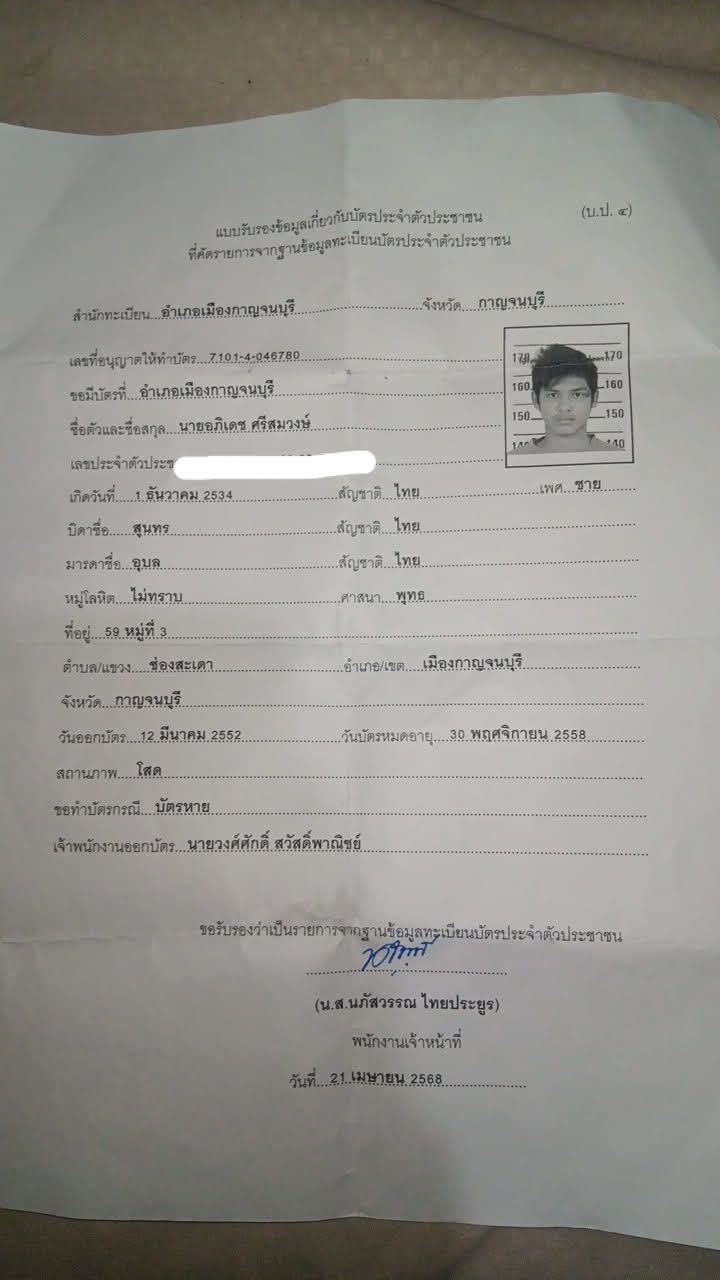 (บ.ป. ๔)
แบบรับรองข้อมูลเกี่ยวกับบัตรประจำตัวประชาชน
ที่คัดรายการจากฐานข้อมูลทะเบียนบัตรประจำตัวประชาชน
สำนักทะเบียน อำเภอเมืองกาญจนบุรี จังหวัด กาญจนบุรี
เลขที่อนุญาตให้ทำบัตร 7101-4-046780
ขอมีบัตรที่ อำเภอเมืองกาญจนบุรี
ชื่อตัวและชื่อสกุล นายอภิเดช ศรีสมวงษ์
เลขประจำตัวประช
170 170
160 160
150 150
140 140
เกิดวันที่ 1 ธันวาคม 2534 สัญชาติ ไทย เพศ ชาย
บิดาชื่อ สุนทร สัญชาติ ไทย
มารดาชื่อ อุบล สัญชาติ ไทย
หมู่โลหิต ไม่ทราบ ศาสนา พุทธ
ที่อยู่ 59 หมู่ที่ 3
ตำบล/แขวง ช่องสะเดา อำเภอ/เขต เมืองกาญจนบุรี
จังหวัด กาญจนบุรี
วันออกบัตร 12 มีนาคม 2552 วันบัตรหมดอายุ 30 พฤศจิกายน 2558
สถานภาพ โสด
ขอทำบัตรกรณี บัตรหาย
เจ้าพนักงานออกบัตร นายวงศ์ศักดิ์ สวัสดิ์พาณิชย์
ขอรับรองว่าเป็นรายการจากฐานข้อมูลทะเบียนบัตรประจำตัวประชาชน
(น.ส.นภัสวรรณ ไทยประยูร)
พนักงานเจ้าหน้าที่
วันที่ 21 เมษายน 2568